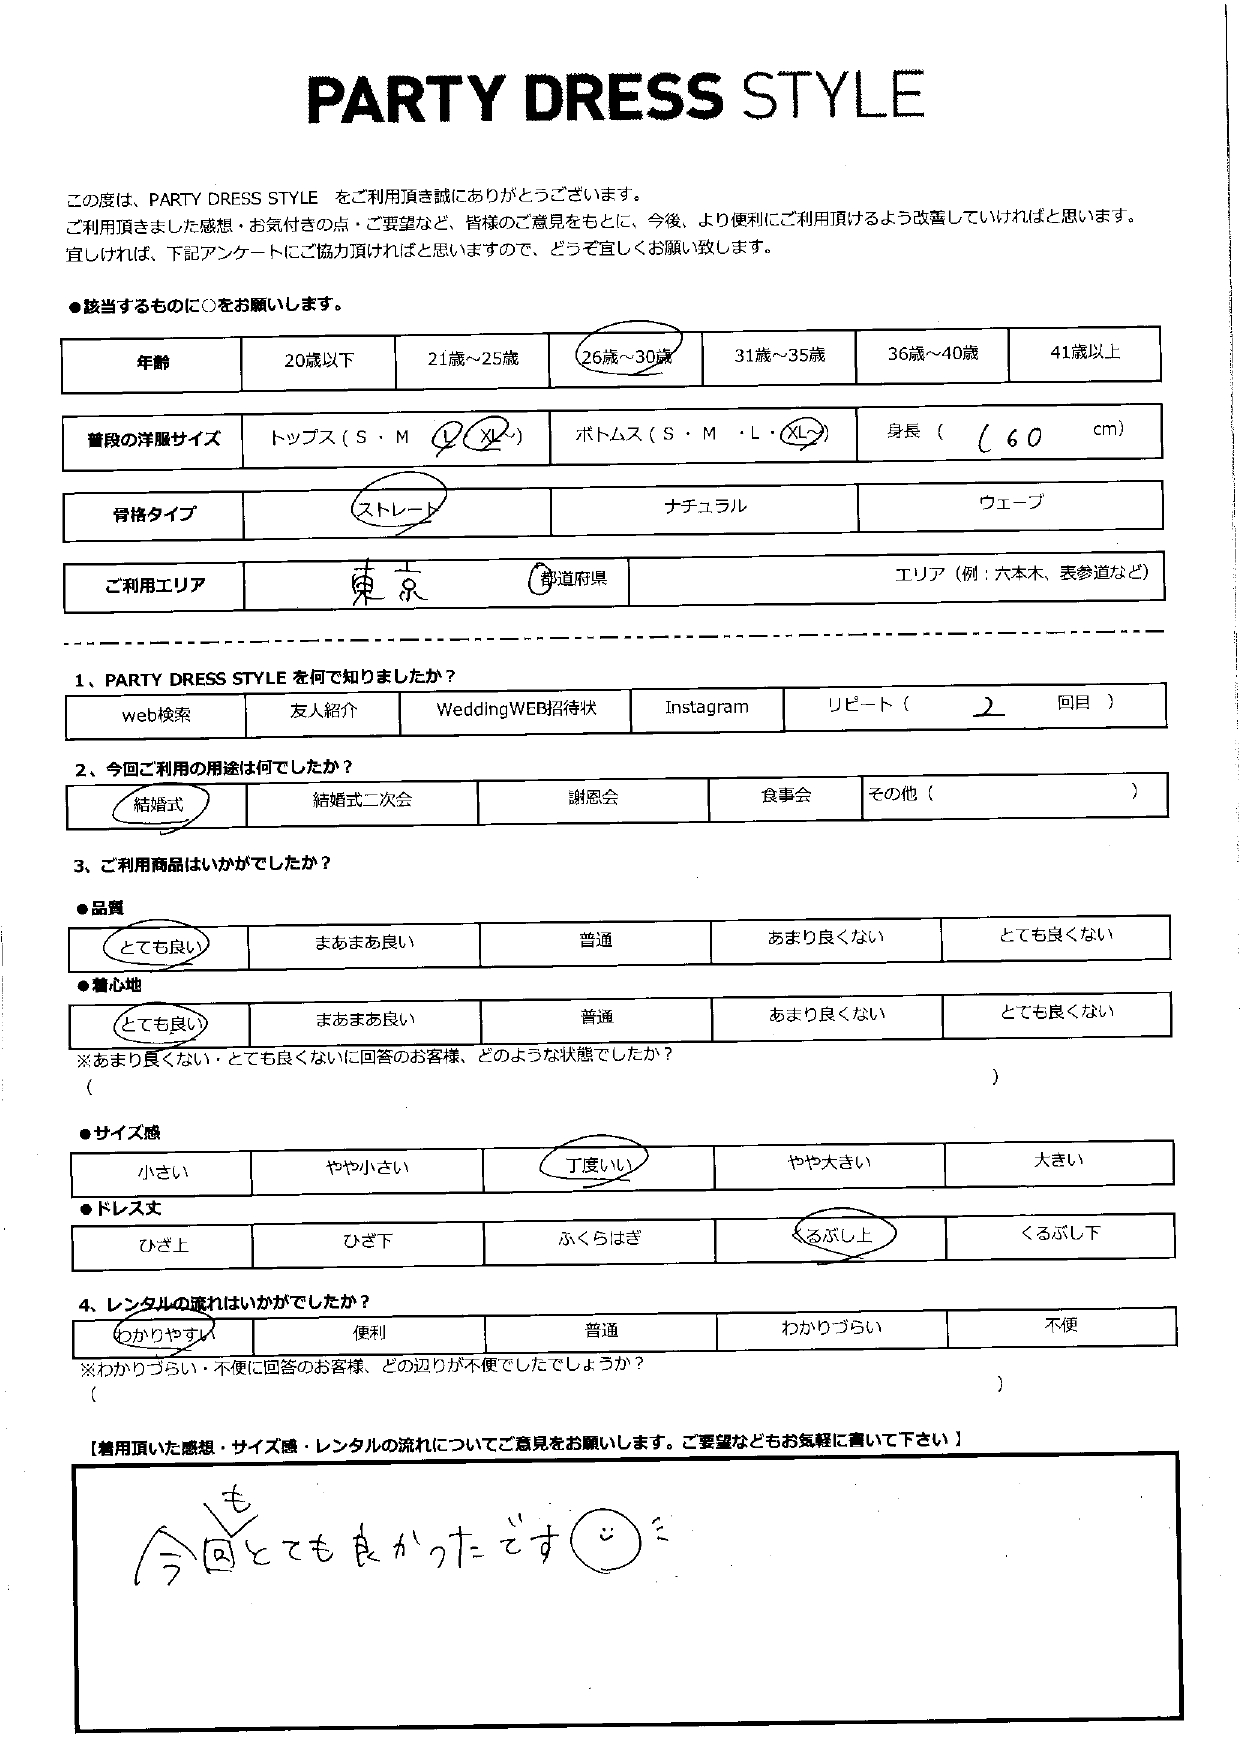 PARTY DRESS STYLE
この度は、PARTY DRESS STYLE をご利用頂き誠にありがとうございます。
ご利用頂きました感想・お気付きの点・ご要望など、皆様のご意見をもとに、今後、より便利にご利用頂けるよう改善していければと思います。
宜しければ、下記アンケートにご協力頂ければと思いますので、どうぞ宜しくお願い致します。
●該当するものに○をお願いします。
年齢 20歳以下 21歳～25歳 26歳～30歳 31歳～35歳 36歳～40歳 41歳以上
普段の洋服サイズ トップス（S・M L XL～） ボトムス（S・M ・L・XL～） 身長（ 160 cm）
骨格タイプ ストレート ナチュラル ウェーブ
ご利用エリア 東京 都道府県 エリア（例：六本木、表参道など）
1、PARTY DRESS STYLE を何で知りましたか？
web検索 友人紹介 WeddingWEB招待状 Instagram リピート（ 2 回目 ）
2、今回ご利用の用途は何でしたか？
結婚式 結婚式二次会 謝恩会 食事会 その他（ ）
3、ご利用商品はいかがでしたか？
●品質
とても良い まあまあ良い 普通 あまり良くない とても良くない
●着心地
とても良い まあまあ良い 普通 あまり良くない とても良くない
※あまり良くない・とても良くないに回答のお客様、どのような状態でしたか？
（ ）
●サイズ感
小さい やや小さい 丁度いい やや大きい 大きい
●ドレス丈
ひざ上 ひざ下 ふくらはぎ くるぶし上 くるぶし下
4、レンタルの流れはいかがでしたか？
わかりやすい 便利 普通 わかりづらい 不便
※わかりづらい・不便に回答のお客様、どの辺りが不便でしたでしょうか？
（ ）
【着用頂いた感想・サイズ感・レンタルの流れについてご意見をお願いします。ご要望などもお気軽に書いて下さい】
今回もとても良かったです